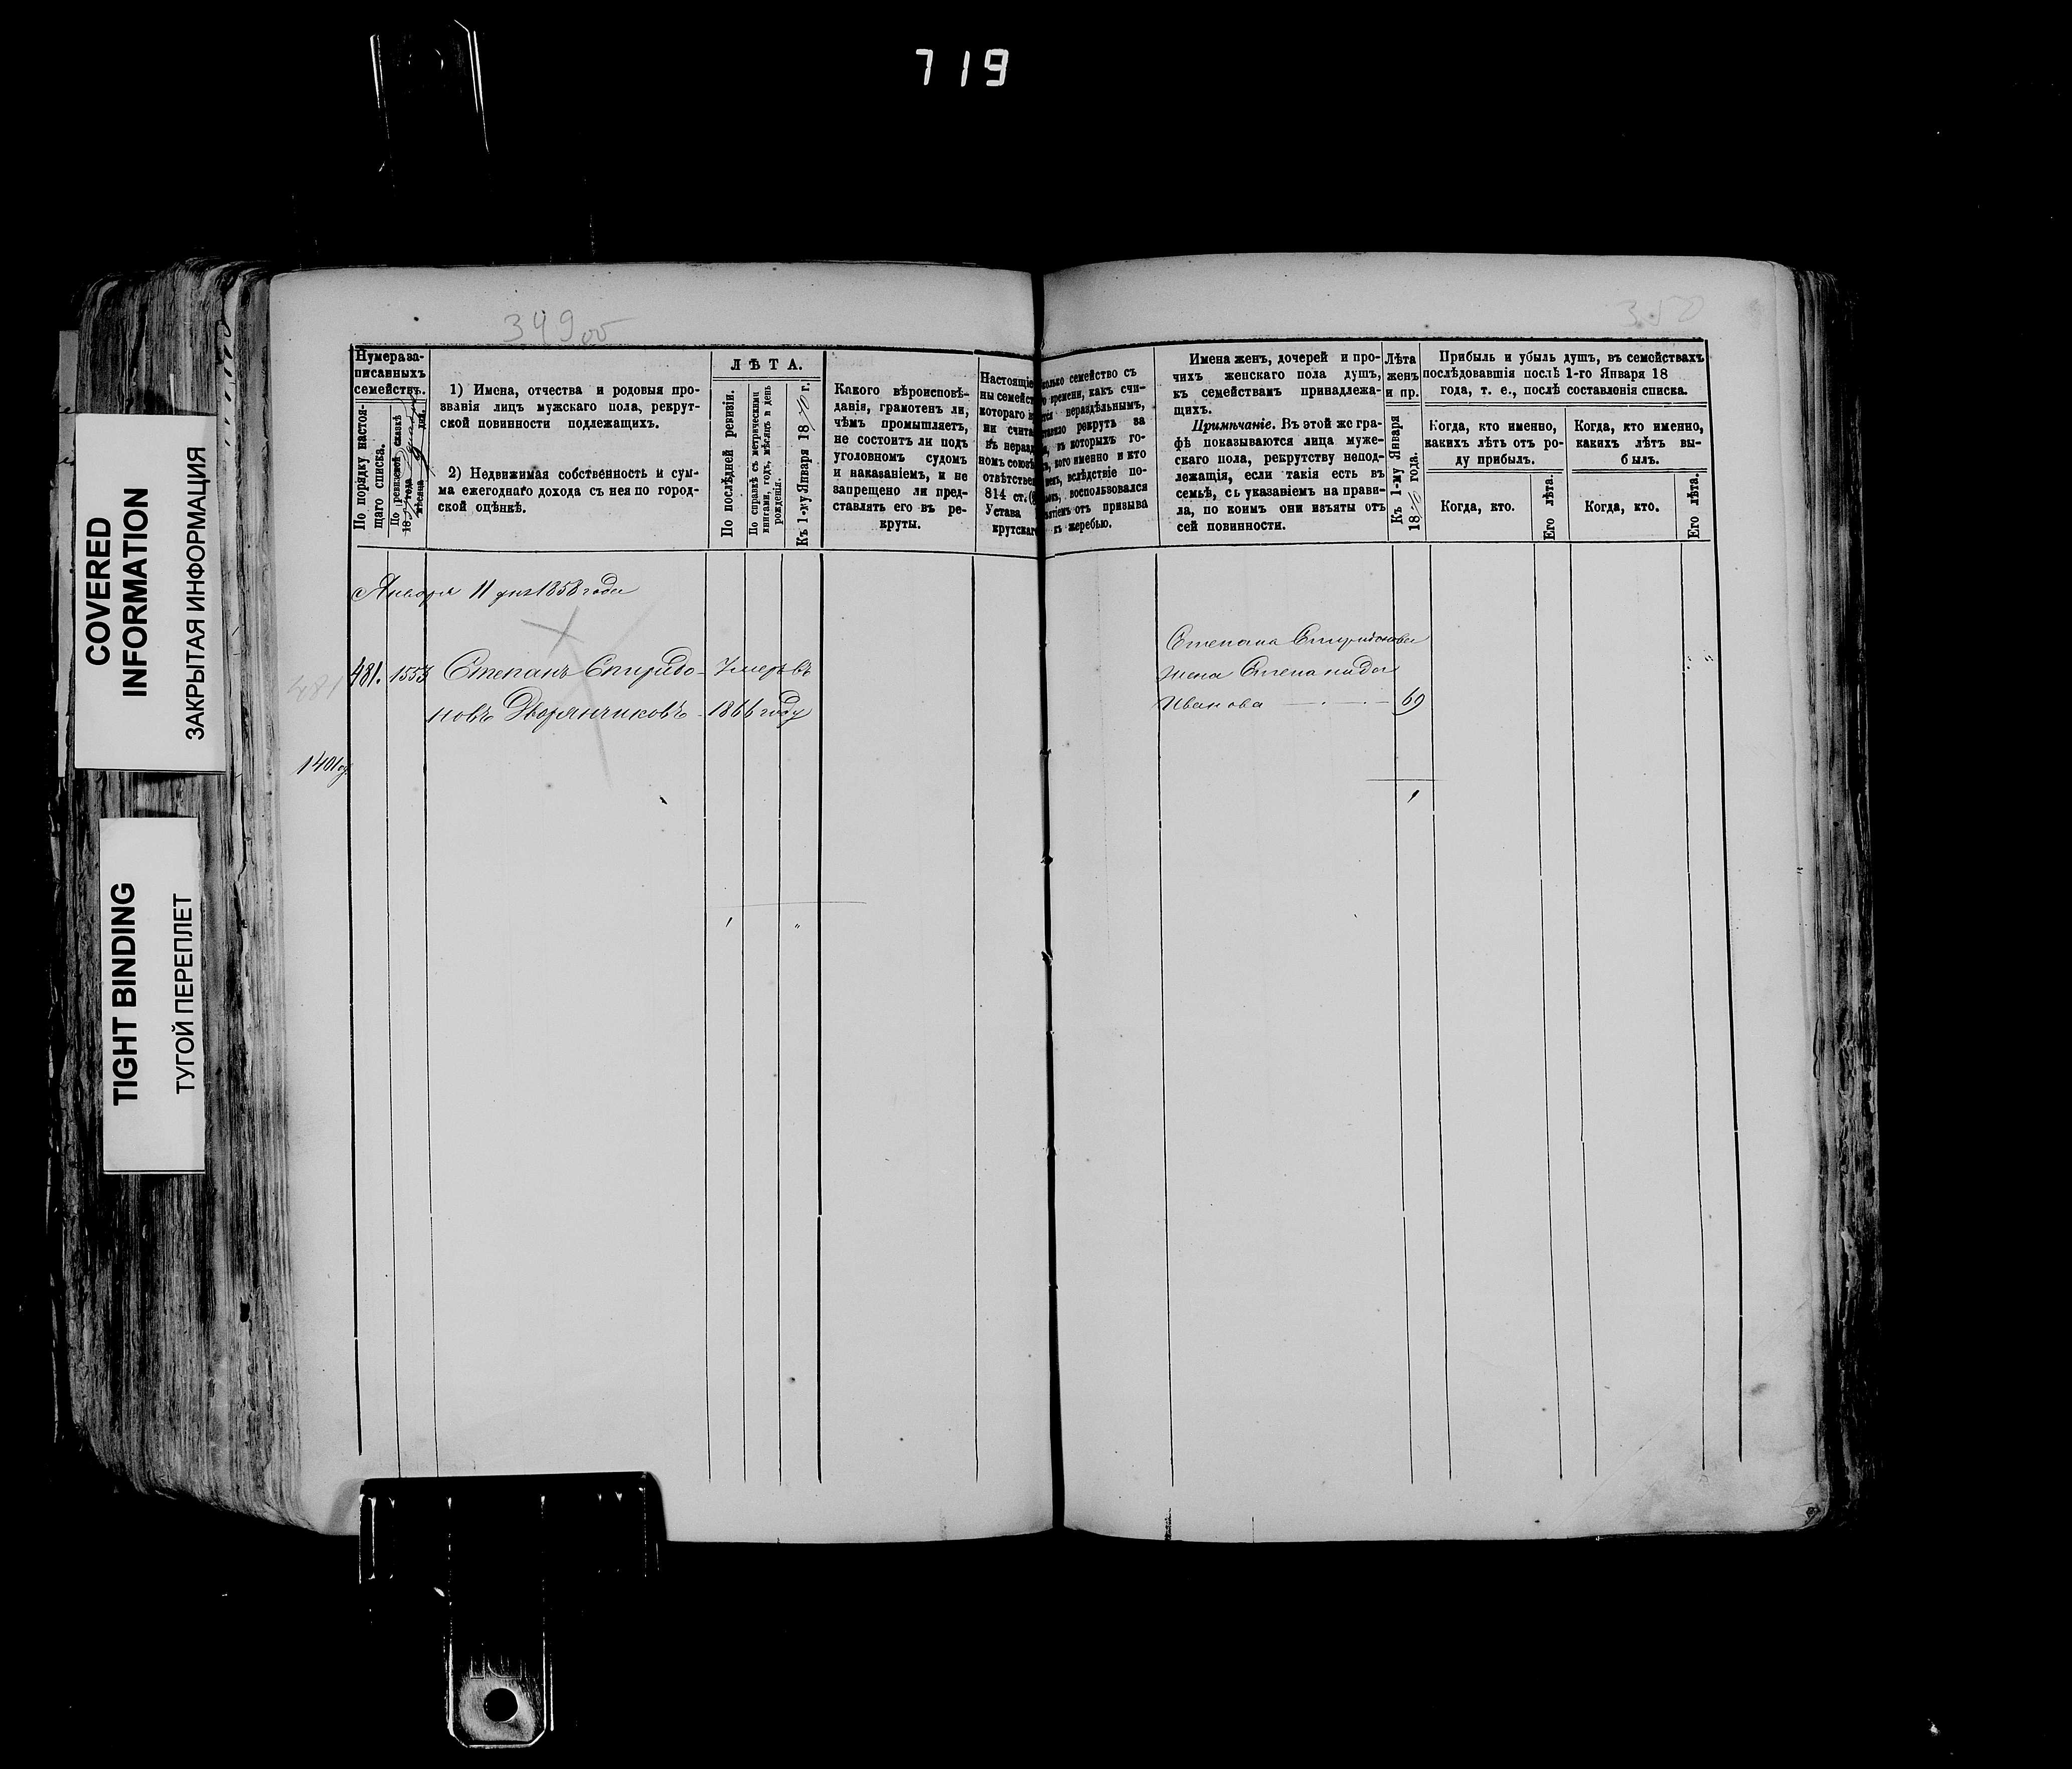 719
COVERED
INFORMATION
ЗАКРЫТАЯ ИНФОРМАЦИЯ
TIGHT BINDING
ТУГОЙ ПЕРЕПЛЕТ
349 об
350
Нумера за-
писанныхъ
семействъ.
По порядку настоя-
щаго списка.
По ревизской сказкѣ
18 года
мѣсяца дня.
1) Имена, отчества и родовыя про-
званія лицъ мужскаго пола, рекрут-
ской повинности подлежащихъ.
2) Недвижимая собственность и сум-
ма ежегоднаго дохода съ нея по город-
ской оцѣнкѣ.
ЛѢТА.
По послѣдней ревизіи.
По справкѣ съ метрическими
книгами, годъ, мѣсяцъ и день
рожденія.
Къ 1-му Января 18 г.
Какого вѣроисповѣ-
данія, грамотенъ ли,
чѣмъ промышляетъ,
не состоитъ ли подъ
уголовнымъ судомъ
и наказаніемъ, и не
запрещено ли пред-
ставлять его въ ре-
круты.
Настоящіе
ны семейст
котораго
ни счита
въ нераз
номъ союзѣ
отвѣтстве
814 ст.
Устава
крутскаг
колько семейство съ
времени, какъ счи-
нераздѣльнымъ,
рекрутъ за
въ которыхъ го-
кого именно и кто
вслѣдствіе по-
воспользовался
отъ призыва
къ жеребью.
Имена женъ, дочерей и про-
чихъ женскаго пола душъ,
къ семействамъ принадлежа-
щихъ.
Примѣчаніе. Въ этой же гра-
фѣ показываются лица муже-
скаго пола, рекрутству непод-
лежащія, если такія есть въ
семьѣ, съ указаніемъ на прави-
ла, по коимъ они изъяты отъ
сей повинности.
Лѣта
женъ
и пр.
Къ 1-му Января
18 года.
Прибыль и убыль душъ, въ семействахъ
послѣдовавшія послѣ 1-го Января 18
года, т. е., послѣ составленія списка.
Когда, кто именно,
какихъ лѣтъ отъ ро-
ду прибылъ.
Когда, кто именно,
какихъ лѣтъ вы-
былъ.
Когда, кто.
Его лѣта.
Когда, кто.
Его лѣта.
Января 11 дня 1858 года
481
481. 1553 Степанъ Спиридо- Умеръ въ
новъ Дворянчиковъ - 1866 году
Степана Спиридонова
жена Степанида
Иванова 69
1
1 "